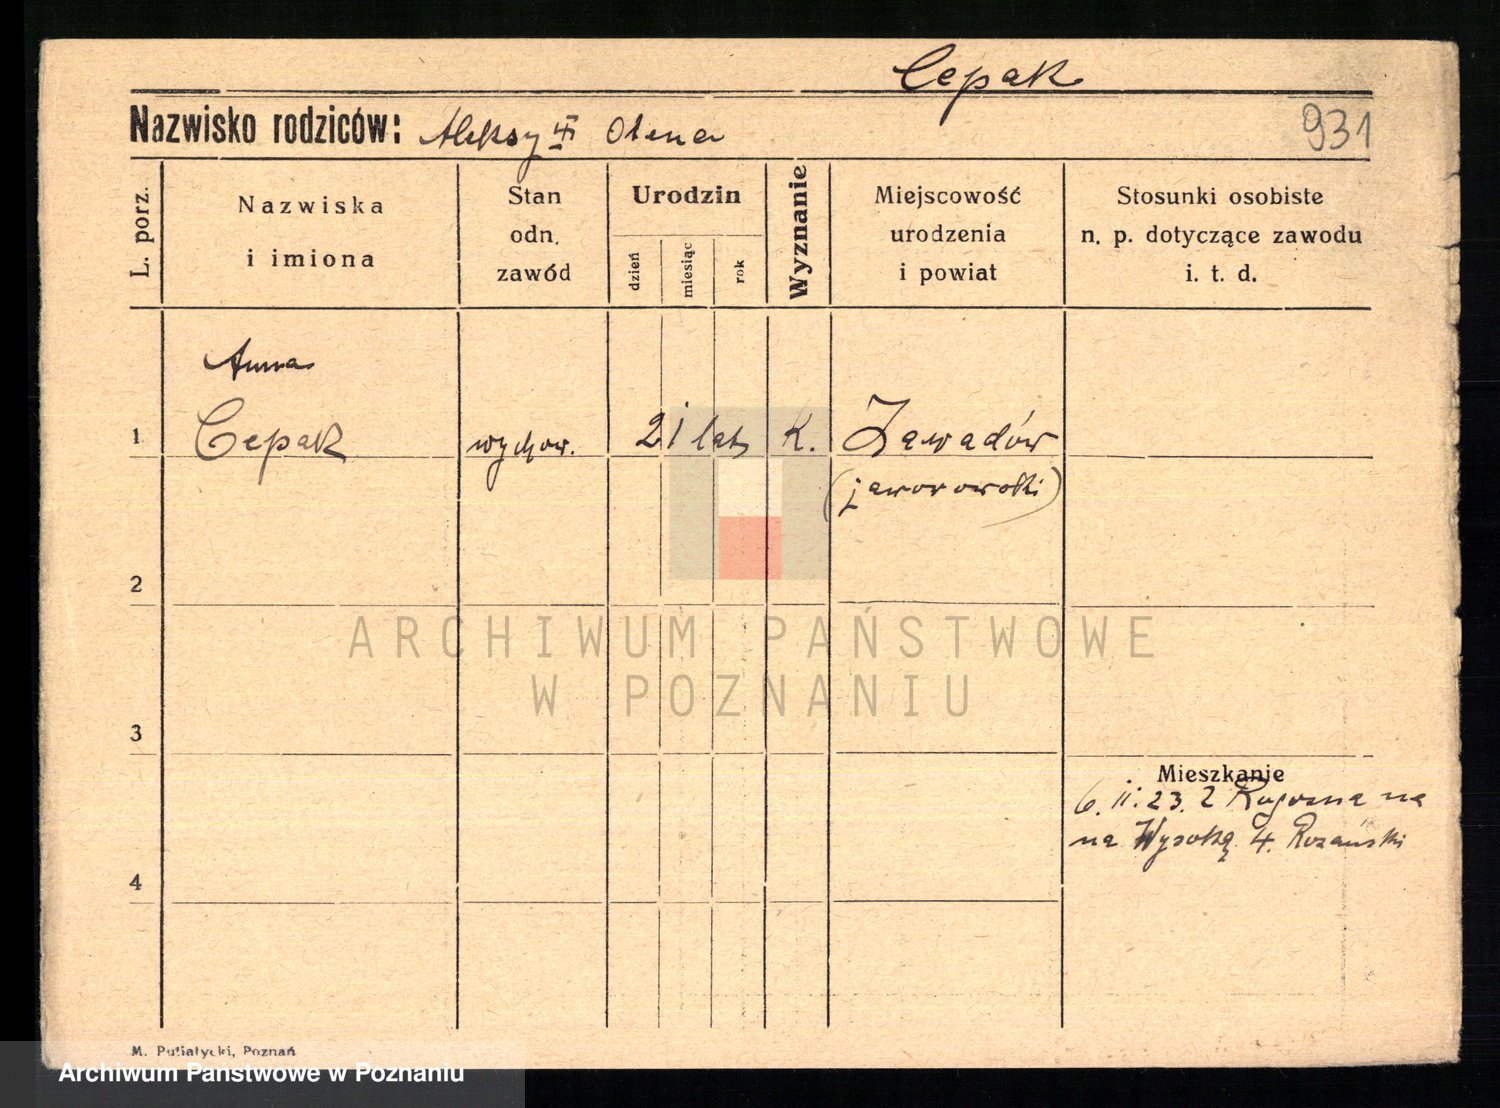 Cepak
Nazwisko rodziców: Aleksy Olena
931
L. porz.
Nazwiska
i imiona
Stan
odn.
zawód
Urodzin
dzień
miesiąc
rok
Wyznanie
Miejscowość
urodzenia
i powiat
Stosunki osobiste
n. p. dotyczące zawodu
i. t. d.
Anna
1 Cepak wychow. 21 lat K. Zawadów
(jaworowski)
2
ARCHIWUM PAŃSTWOWE
W POZNANIU
3
Mieszkanie
6. 11. 23. z na
na Wysoką 4. Rozański
4
M. Putiatycki, Poznań
Archiwum Państwowe w Poznaniu